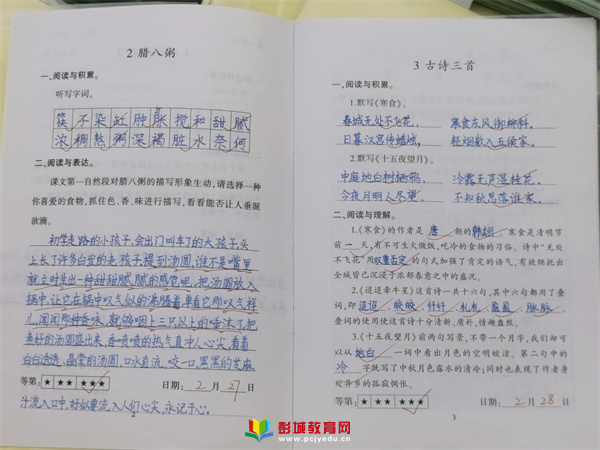 2 腊八粥
一、阅读与积累。
听写字词。
筷 不 染 缸 肿 胀 搅 和 甜 腻
浓 稠 熬 粥 深 褐 脏 水 奈 何
二、阅读与表达。
课文第一自然段对腊八粥的描写形象生动,请选择一种
你喜爱的食物,抓住色、香、味进行描写,看看能否让人垂涎
欲滴。
初学走路的小孩子,会出门叫车了的大孩子,头
上长了许多白发的老孩子,提到汤圆,谁不是嘴里
就立时生出一种甜甜腻腻的感觉呢。把汤圆放入
锅中,让它在锅中叹气似的沸腾着,单看它那叹气样
儿,闻闻那种香味,就够咽上三只以上的唾沫了,把
煮好的汤圆盛出来,香喷喷的热气直冲人心尖,看着
白白滚滚、晶莹的汤圆,口水直流,咬一口,黑黑的芝麻
等第: ★ ★★ ★★★ 日期: 2 月 27 日
汁流入口中,好似要流入人们心尖,永记于心。
2
3 古诗三首
一、阅读与积累。
1.默写《寒食》。
春城无处不飞花, 寒食东风御柳斜。
日暮汉宫传蜡烛, 轻烟散入五侯家。
2.默写《十五夜望月》。
中庭地白树栖鸦, 冷露无声湿桂花。
今夜月明人尽望, 不知秋思落谁家。
二、阅读与理解。
1.《寒食》的作者是 唐 朝的 韩翃 。寒食是清明节
前 一 天,有不可生火做饭,吃冷的食物的习俗。诗中“无处
不飞花”用 双重否定 的句式加强了肯定的语气,有效烘托出
全城皆已沉浸于浓郁春意之中的盛况。
2.《迢迢牵牛星》这首诗一共十六句,其中六句都用了叠
词,即 迢迢 、 皎皎 、 纤纤 、 札札 、 盈盈 、 脉脉 。
叠词的使用使这首诗十分清新、质朴,情趣盎然。
3.《十五夜望月》前两句写景,不带一个月字,我们却可
以从 地白 一词中看出月色的空明皎洁。第二句中的
冷 字既写了中秋月色露水的清冷;同时也表现了作者身
处异乡的孤寂惆怅。
等第: ★ ★★ ★★★ 日期: 2 月 28 日
3
彭城教育网
www.pcjyedu.cn